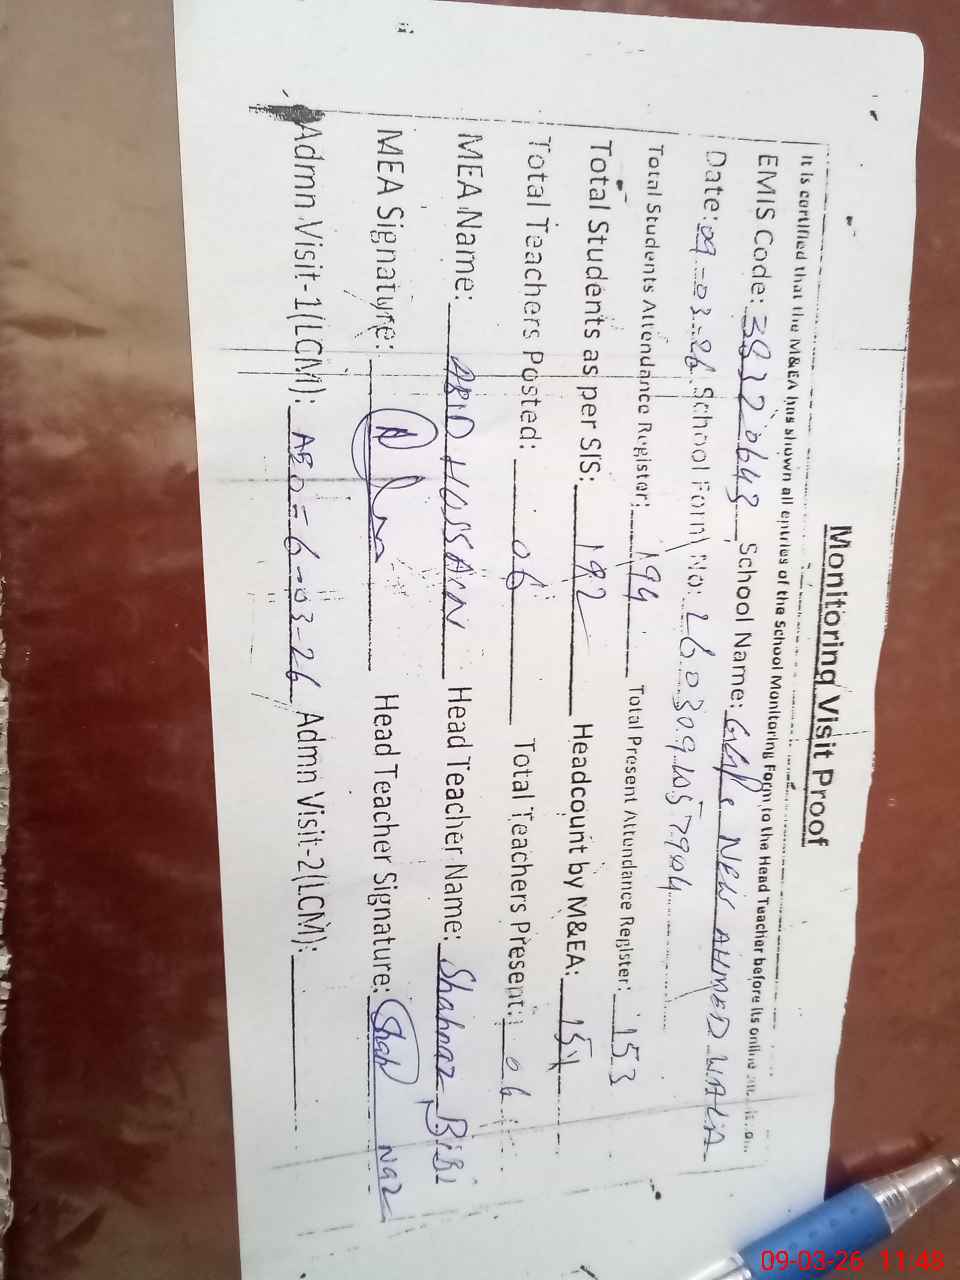 Monitoring Visit Proof
It is certified that the M&EA has shown all entries of the School Monitoring Form to the Head Teacher before its online
EMIS Code: 38320643 School Name: GGPS NEW AHMED WALA
Date: 09-03-26 School Form No: 2603091057904
Total Students Attendance Register: 194 Total Present Attendance Register: 153
Total Students as per SIS: 192 Headcount by M&EA: 151
Total Teachers Posted: 06 Total Teachers Present: 06
MEA Name: ABID HUSSAIN Head Teacher Name: Shahnaz Bibi
MEA Signature: Head Teacher Signature: Shah naz
Admn Visit-1(LCM): AEO = 6-03-26 Admn Visit-2(LCM):
09-03-26 11:48